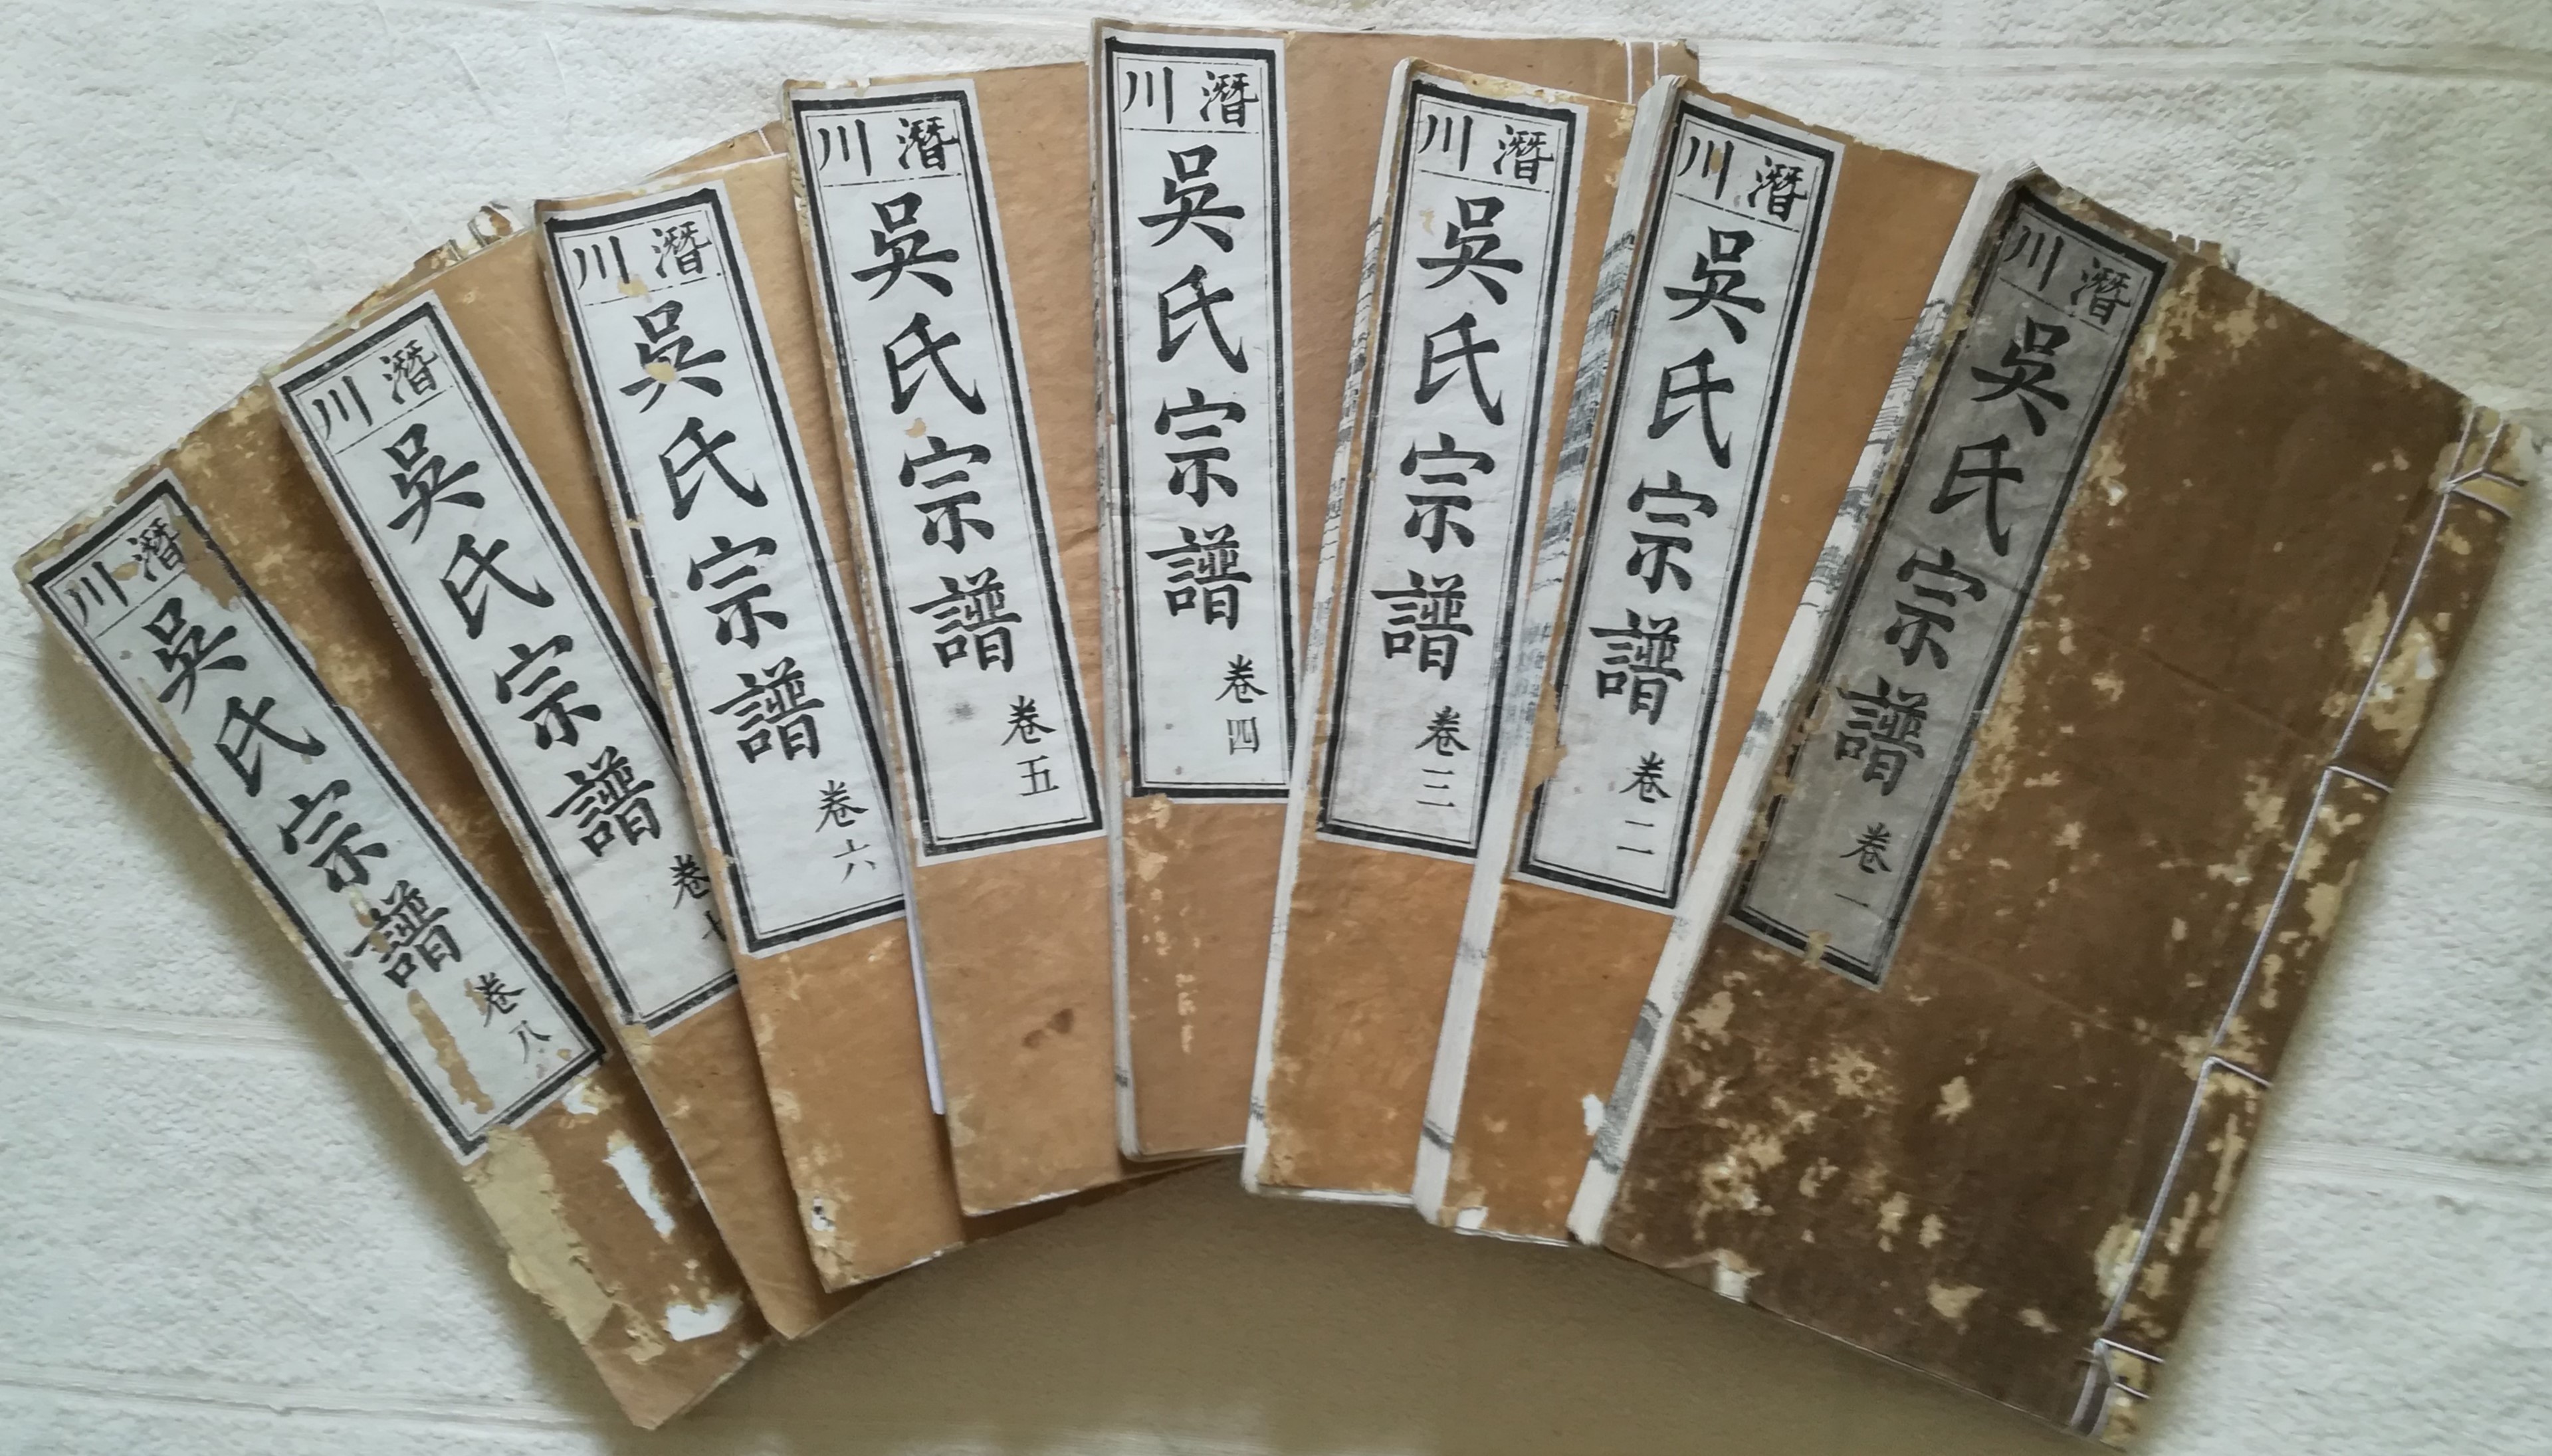 潛川
吳氏宗譜
卷一
潛川
吳氏宗譜
卷二
潛川
吳氏宗譜
卷三
潛川
吳氏宗譜
卷四
潛川
吳氏宗譜
卷五
潛川
吳氏宗譜
卷六
潛川
吳氏宗譜
卷七
潛川
吳氏宗譜
卷八